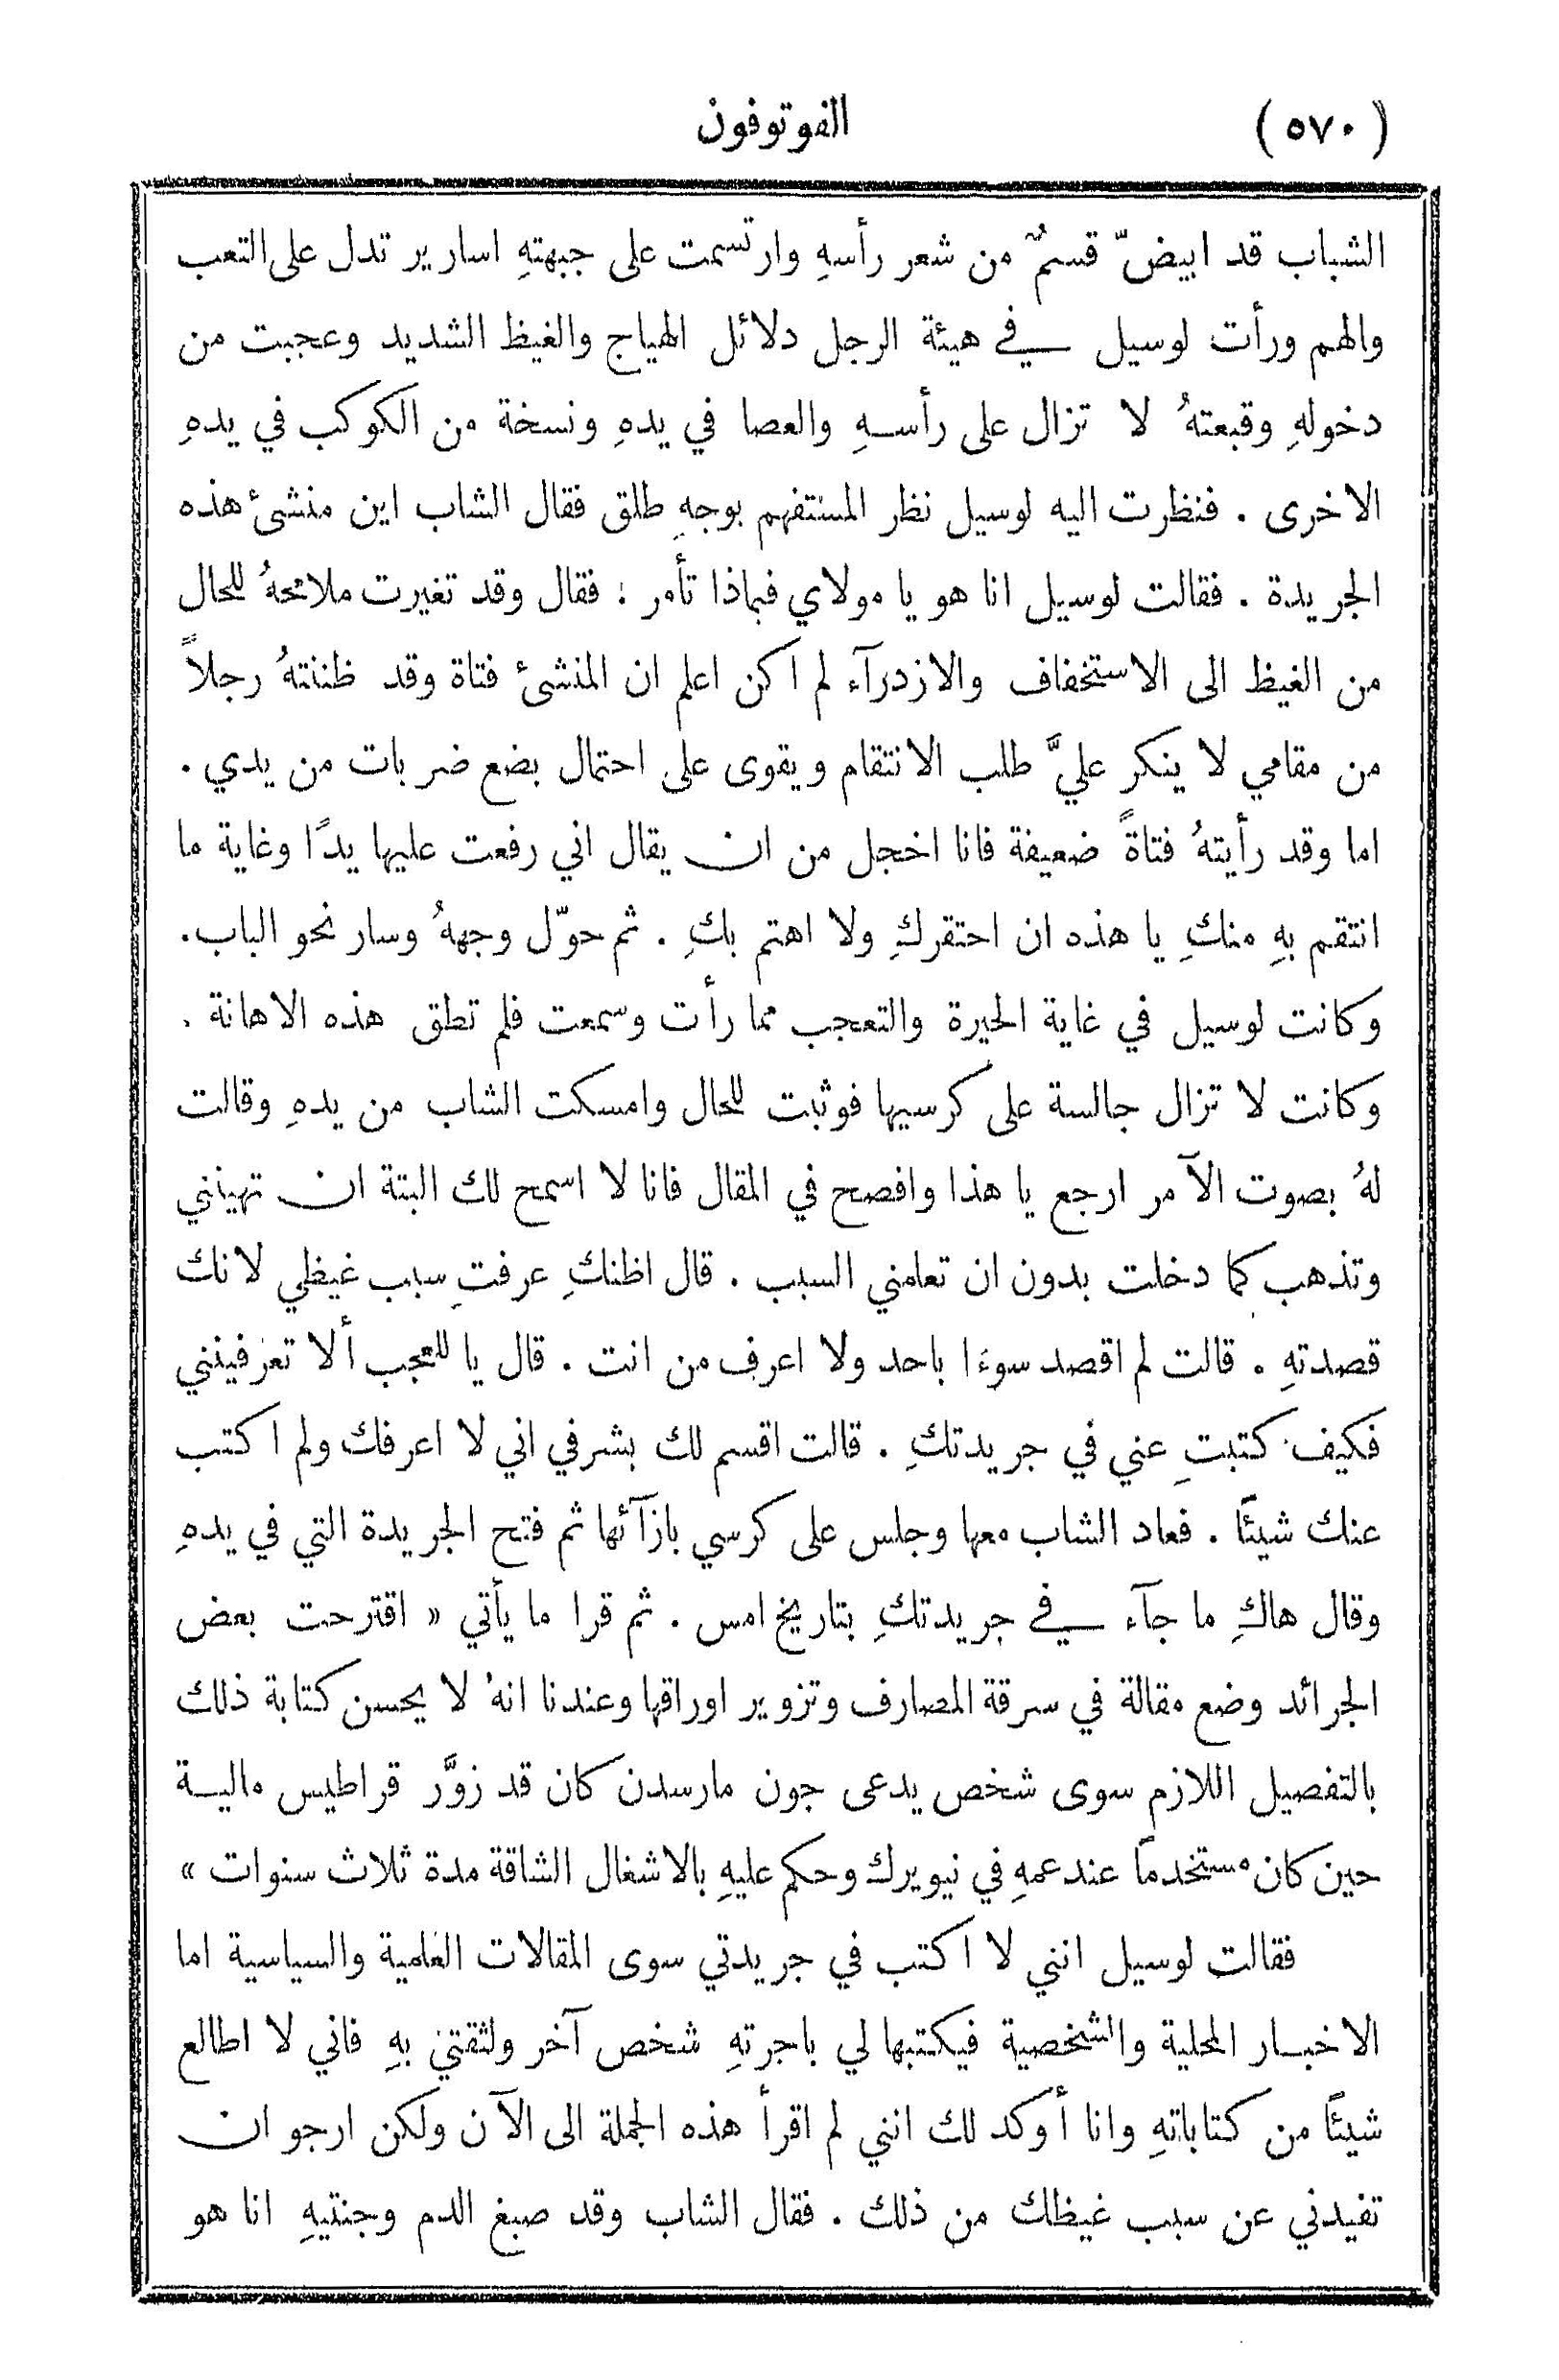 (٥٧٠) الفوتوفون
الشباب قد ابيضّ قسمٌ من شعر رأسهِ وارتسمت على جبهتهِ اسارير تدل على التعب
والهم ورأت لوسيل في هيئة الرجل دلائل الهياج والغيظ الشديد وعجبت من
دخولهِ وقبعتهُ لا تزال على رأسهِ والعصا في يدهِ ونسخة من الكوكب في يدهِ
الاخرى . فنظرت اليه لوسيل نظر المستفهم بوجهٍ طلق فقال الشاب اين منشئ هذه
الجريدة . فقالت لوسيل انا هو يا مولاي فبماذا تأمر ؛ فقال وقد تغيرت ملامحهُ للحال
من الغيظ الى الاستخفاف والازدرآء لم اكن اعلم ان المنشئ فتاة وقد ظننتهُ رجلاً
من مقامي لا ينكر عليَّ طلب الانتقام ويقوى على احتمال بضع ضربات من يدي .
اما وقد رأيتهُ فتاةً ضعيفة فانا اخجل من ان يقال اني رفعت عليها يدًا وغاية ما
انتقم بهِ منكِ يا هذه ان احتقركِ ولا اهتم بكِ . ثم حوّل وجههُ وسار نحو الباب.
وكانت لوسيل في غاية الحيرة والتعجب مما رأت وسمعت فلم تطق هذه الاهانة .
وكانت لا تزال جالسة على كرسيها فوثبت للحال وامسكت الشاب من يدهِ وقالت
لهُ بصوت الآمر ارجع يا هذا وافصح في المقال فانا لا اسمح لك البتة ان تهينني
وتذهب كما دخلت بدون ان تعلمني السبب . قال اظنكِ عرفتِ سبب غيظي لانك
قصدتهِ . قالت لم اقصد سوءًا باحد ولا اعرف من انت . قال يا للعجب ألا تعرفينني
فكيف كتبتِ عني في جريدتكِ . قالت اقسم لك بشرفي اني لا اعرفك ولم اكتب
عنك شيئًا . فعاد الشاب معها وجلس على كرسي بازآئها ثم فتح الجريدة التي في يدهِ
وقال هاكِ ما جآء في جريدتكِ بتاريخ امس . ثم قرا ما يأتي « اقترحت بعض
الجرائد وضع مقالة في سرقة المصارف وتزوير اوراقها وعندنا انهُ لا يحسن كتابة ذلك
بالتفصيل اللازم سوى شخص يدعى جون مارسدن كان قد زوَّر قراطيس مالية
حين كان مستخدمًا عند عمهِ في نيويرك وحكم عليهِ بالاشغال الشاقة مدة ثلاث سنوات »
فقالت لوسيل انني لا اكتب في جريدتي سوى المقالات العلمية والسياسية اما
الاخبار المحلية والشخصية فيكتبها لي باجرتهِ شخص آخر ولثقتي بهِ فاني لا اطالع
شيئًا من كتاباتهِ وانا أوكد لك انني لم اقرأ هذه الجملة الى الآن ولكن ارجو ان
تفيدني عن سبب غيظك من ذلك . فقال الشاب وقد صبغ الدم وجنتيهِ انا هو